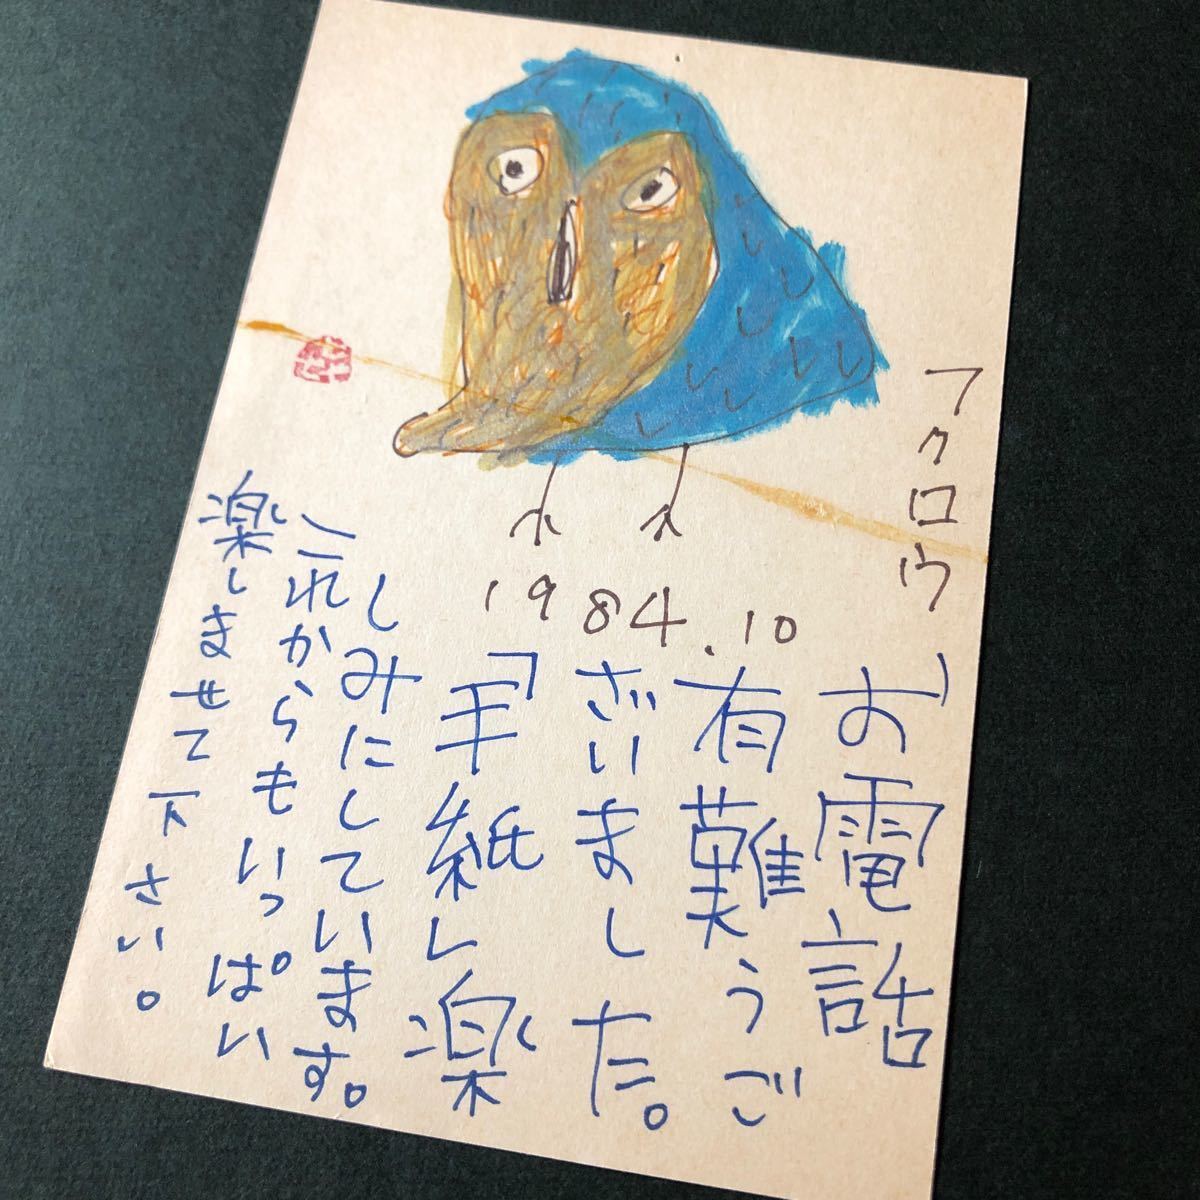 フクロウ
1984.10
お電話
有難うご
ざいました。
「手紙」楽
しみにしています。
これからもいっぱい
楽しませて下さい。